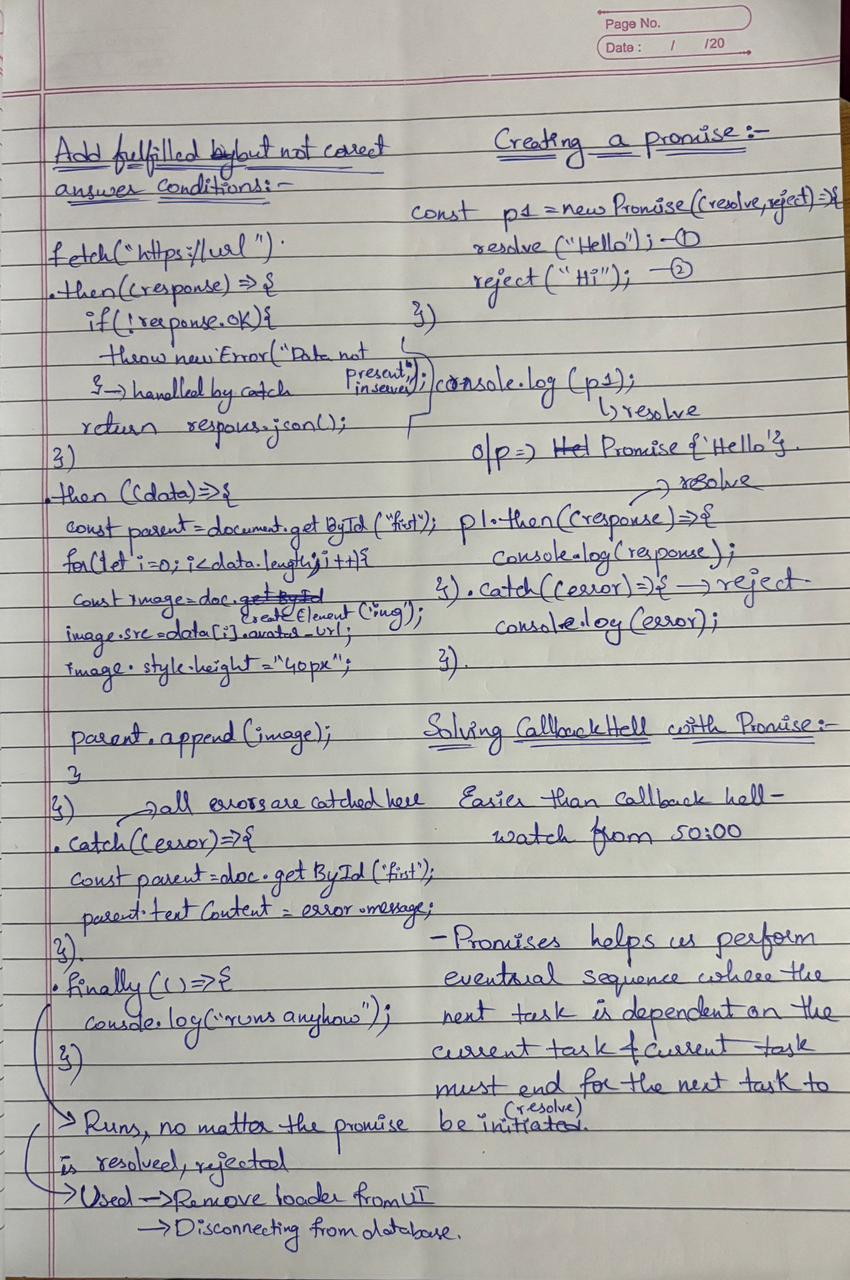 Page No.
Date : / /20
Add fulfilled by but not correct
answer conditions:-
fetch("https://url").
.then((response) => {
if(!response.ok){
throw new Error("Data not
present
in server");
} → handled by catch
return respons.json();
})
.then ((data)=>{
const parent = document.get ById ("first");
for(let i=0; i<data.length; i++){
const image = doc.get ById
create Element ('img');
image.src = data[i].avatar_url;
image.style.height = "40px";
parent.append(image);
}
})
→ all errors are catched here
.catch((error)=>{
const parent = doc.get ById ('first');
parent.text Content = error.message;
}).
.finally(()=>{
console.log("runs anyhow");
})
→ Runs, no matter the promise
is resolved, rejected
→ Used → Remove loader from UI
→ Disconnecting from database.
Creating a promise:-
const p1 = new Promise((resolve, reject) => {
resolve ("Hello"); -①
reject ("Hi"); -②
})
console.log (p1);
↳ resolve
o/p => Hel Promise {'Hello'}.
→ resolve
p1.then((response)=>{
console.log(response);
}).catch((error)=>{ → reject
console.log (error);
}).
Solving Callback Hell with Promise:-
Easier than callback hell-
watch from 50:00
- Promises helps us perform
eventual sequence where the
next task is dependent on the
current task & current task
must end for the next task to
(resolve)
be initiated.